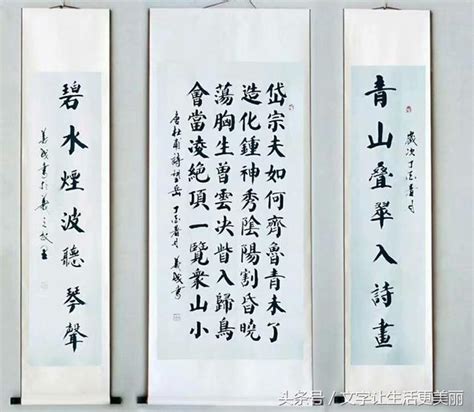 青山叠翠入詩畫
岱宗夫如何齊魯青未了
造化鍾神秀陰陽割昏曉
蕩胸生曾雲决眥入歸鳥
會當凌絶頂一覽衆山小
唐杜甫詩望岳
碧水煙波聽琴聲
头条号／文字让生活更美丽